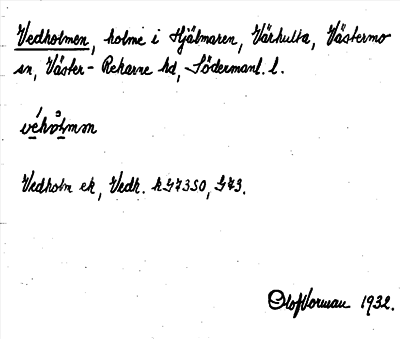 Vedholmen, holme i Hjälmaren, Värhulta, Västermo
sn, Väster-Rekarne hd, Södermanl. l.
véhòlmən
Vedholm ek, Vedh. hG73SO, G73.
Olof Vorman 1932.